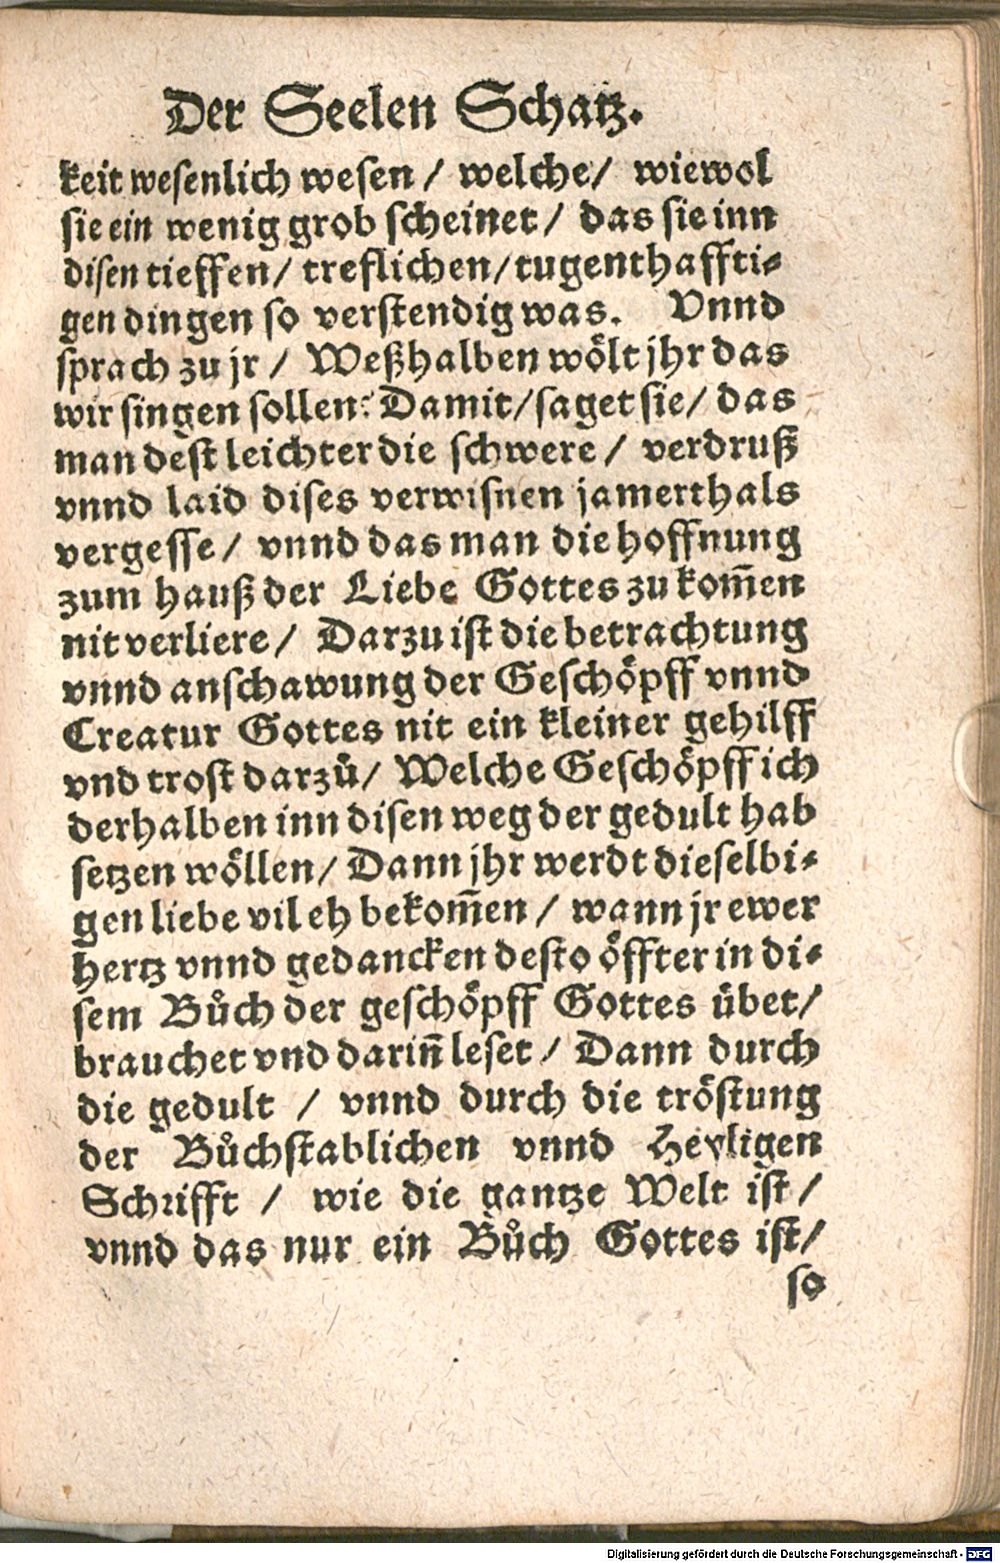 Der Seelen Schatz.
keit wesenlich wesen / welche / wiewol
sie ein wenig grob scheinet / das sie inn
disen tieffen / treflichen / tugenthaffti-
gen dingen so verstendig was. Vnnd
sprach zu jr / Weßhalben wölt jhr das
wir singen sollen: Damit / saget sie / das
man dest leichter die schwere / verdruß
vnnd laid dises verwisnen jamerthals
vergesse / vnnd das man die hoffnung
zum hauß der Liebe Gottes zu kom̃en
nit verliere / Darzu ist die betrachtung
vnnd anschawung der Geschöpff vnnd
Creatur Gottes nit ein kleiner gehilff
vnd trost darzů / Welche Geschöpff ich
derhalben inn disen weg der gedult hab
setzen wöllen / Dann jhr werdt dieselbi-
gen liebe vil eh bekom̃en / wann jr ewer
hertz vnnd gedancken desto öffter in di-
sem Bůch der geschöpff Gottes übet /
brauchet vnd darin̄ leset / Dann durch
die gedult / vnnd durch die tröstung
der Bůchstablichen vnnd Heyligen
Schrifft / wie die gantze Welt ist /
vnnd das nur ein Bůch Gottes ist /
so
Digitalisierung gefördert durch die Deutsche Forschungsgemeinschaft - DFG